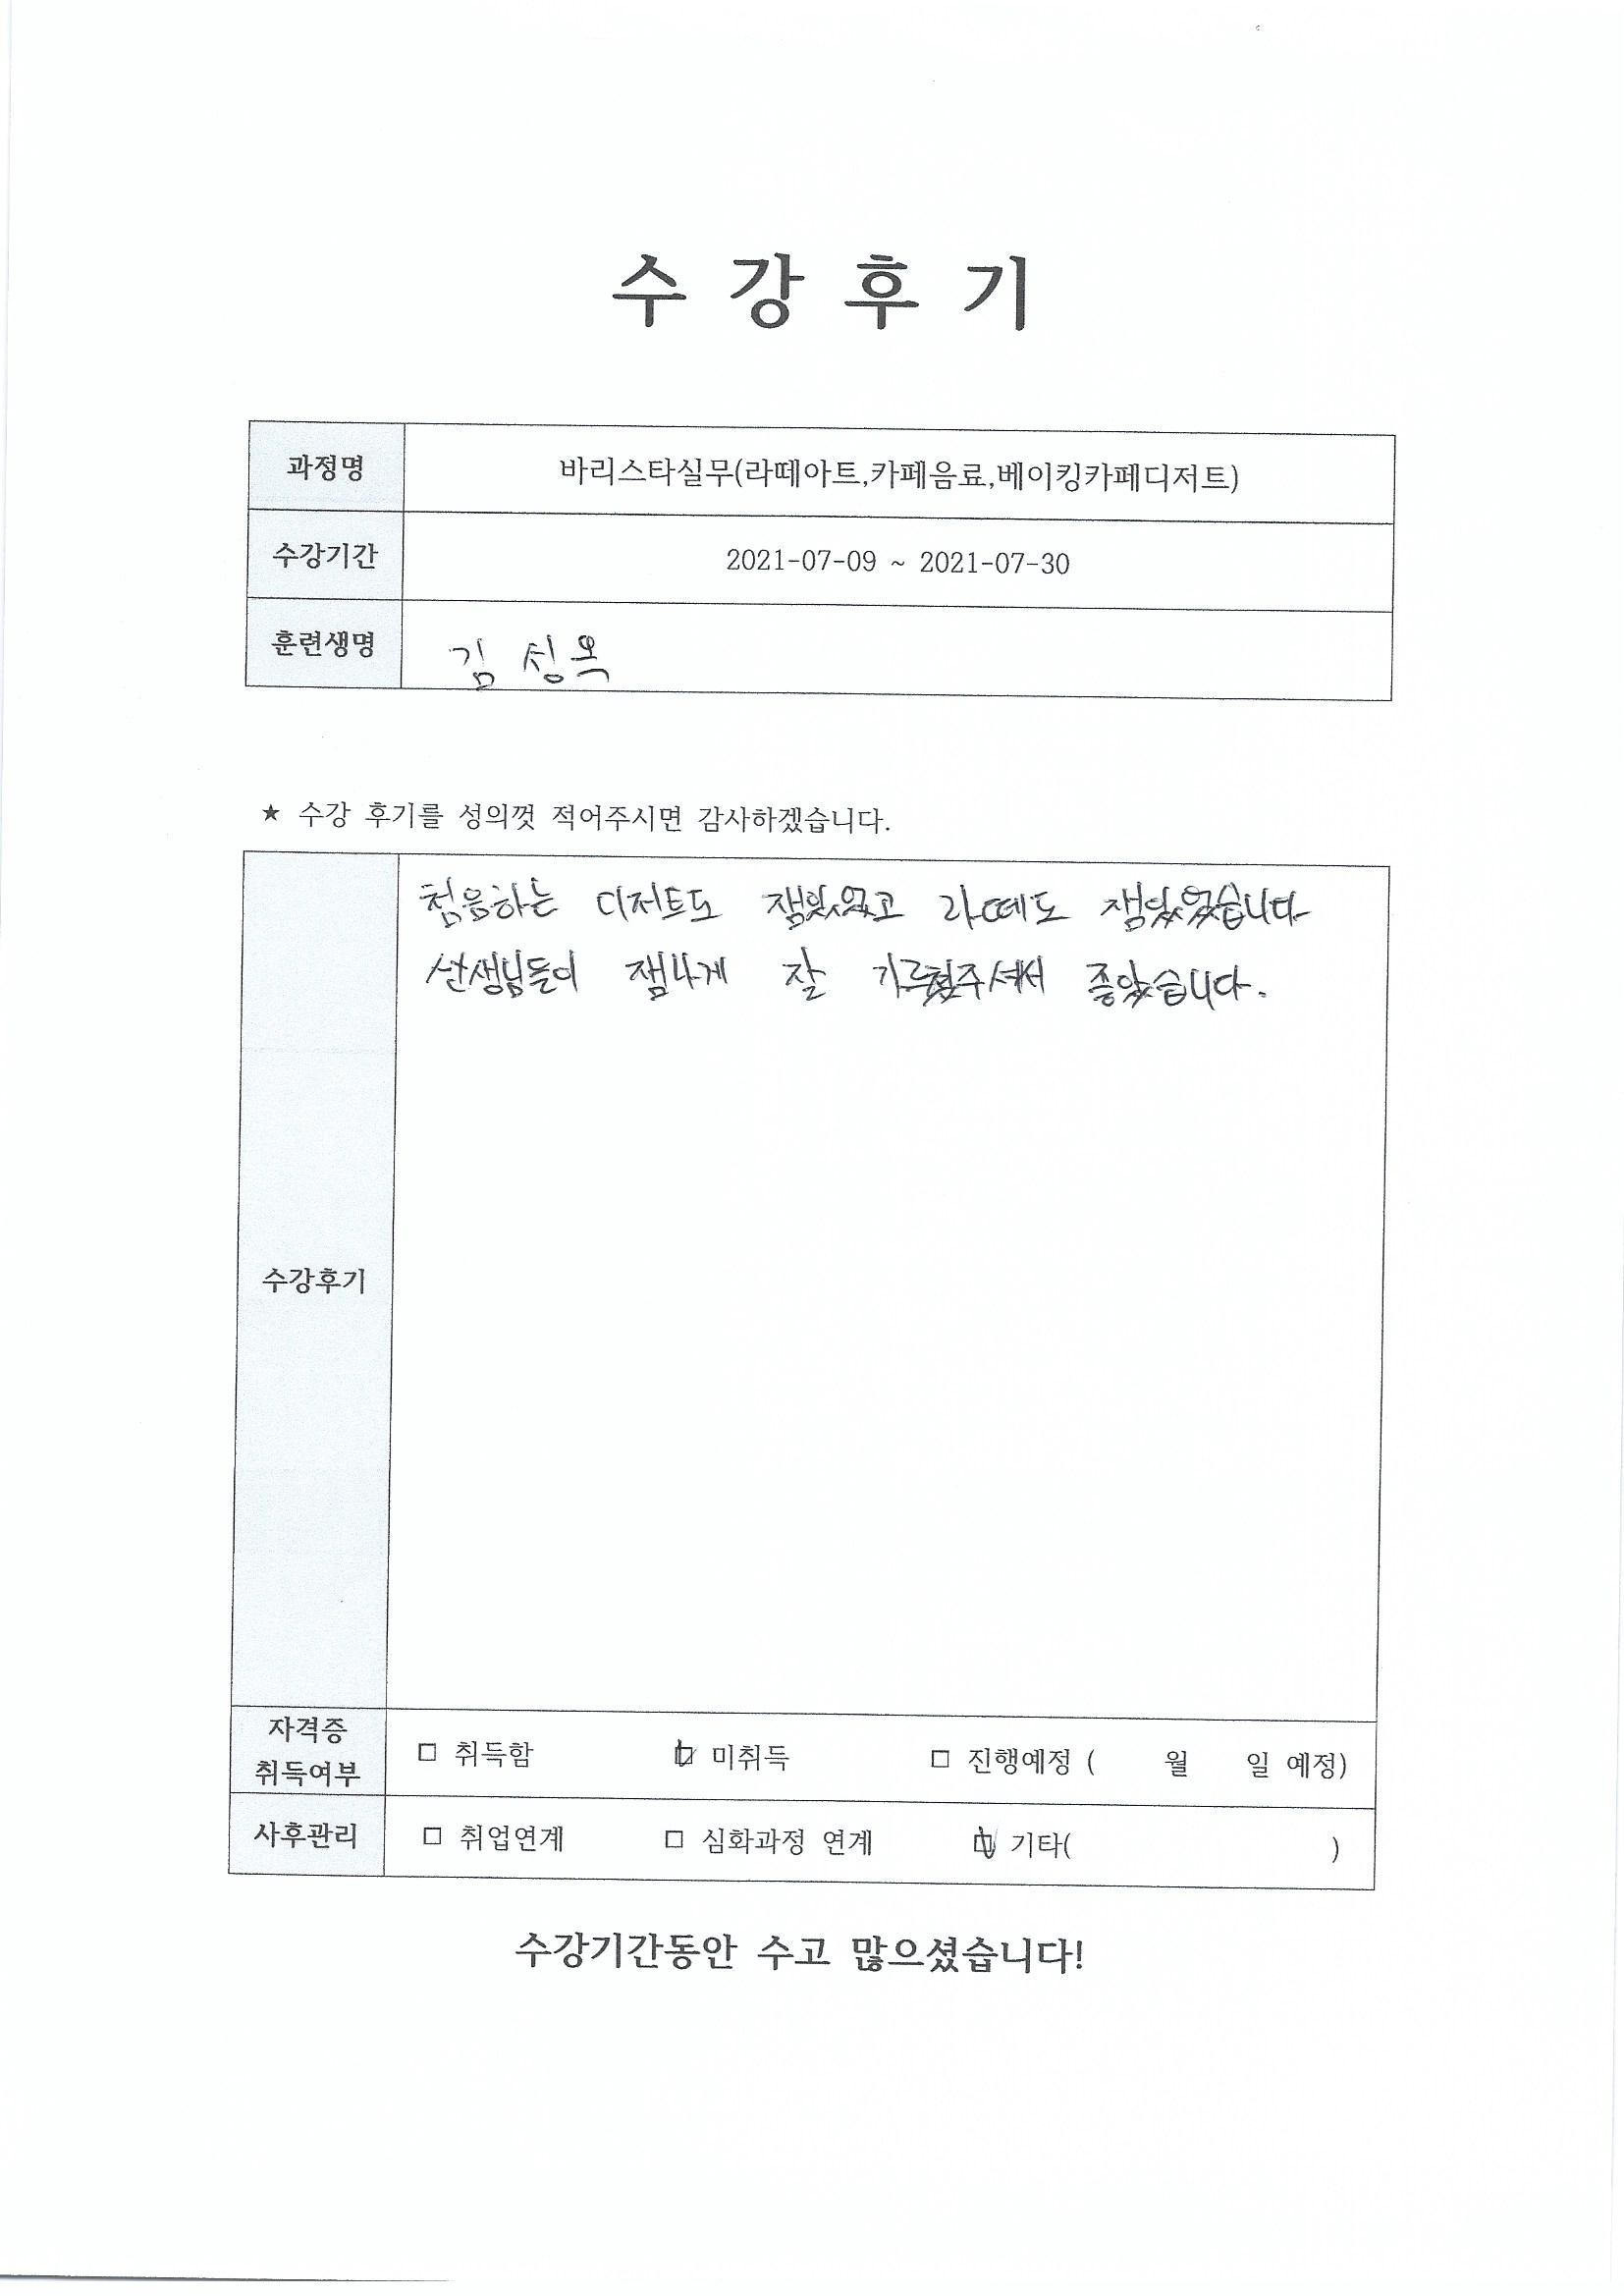 수 강 후 기
과정명 바리스타실무(라떼아트,카페음료,베이킹카페디저트)
수강기간 2021-07-09 ~ 2021-07-30
훈련생명 김 성옥
★ 수강 후기를 성의껏 적어주시면 감사하겠습니다.
첨음하는 디저트도 잼있었고 라떼도 잼있었습니다
선생님들이 잼나게 잘 좋았습니다.
수강후기
자격증
취득여부
□ 취득함 ☑ 미취득 □ 진행예정 ( 월 일 예정)
사후관리 □ 취업연계 □ 심화과정 연계 ☑ 기타( )
수강기간동안 수고 많으셨습니다!